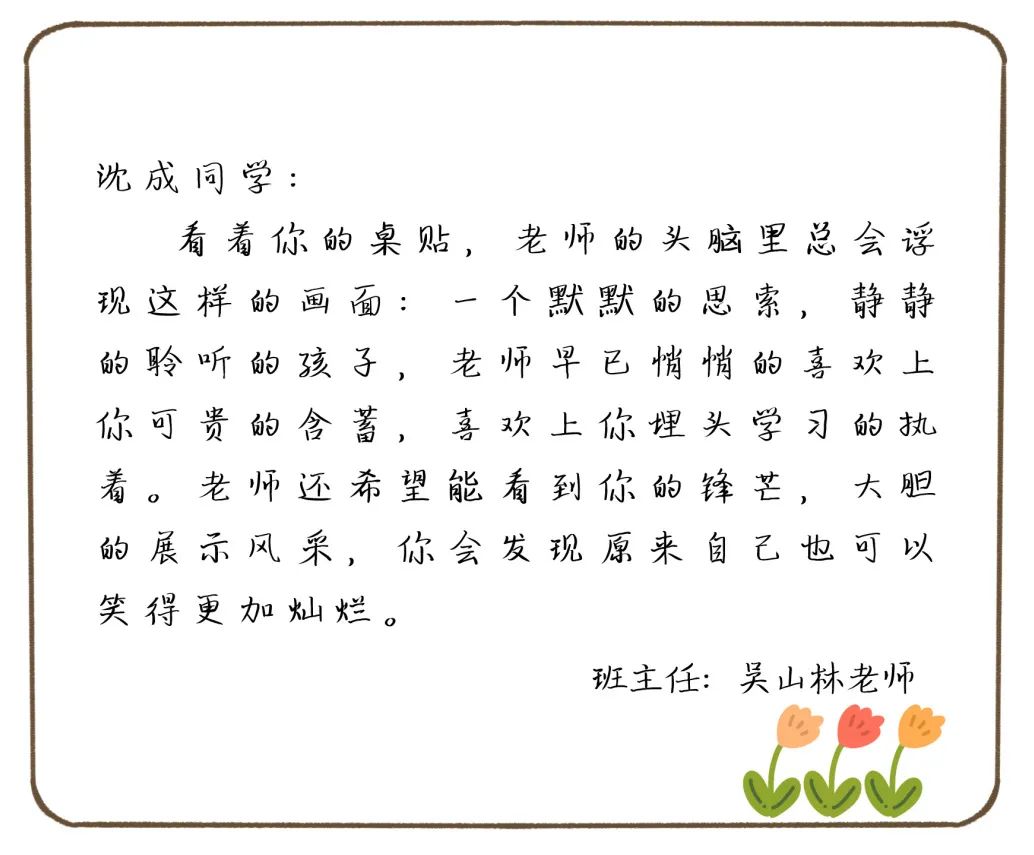 沈成同学：
看着你的桌贴，老师的头脑里总会浮
现这样的画面：一个默默的思索，静静
的聆听的孩子，老师早已悄悄的喜欢上
你可贵的含蓄，喜欢上你埋头学习的执
着。老师还希望能看到你的锋芒，大胆
的展示风采，你会发现原来自己也可以
笑得更加灿烂。
班主任：吴山林老师